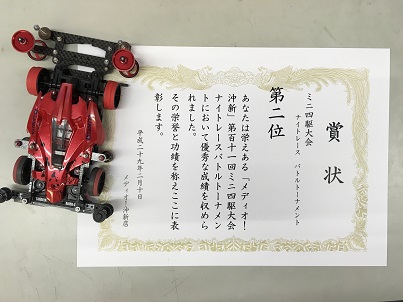 賞状
ミニ四駆大会
ナイトレース バトルトーナメント
第二位
あなたは栄えある「メディオ！
沖新」第百十一回ミニ四駆大会
ナイトレースバトルトーナメン
トにおいて優秀な成績を収めら
れました。
その栄誉と功績を称えここに表
彰します。
平成二十九年二月十日
メディオ！沖新店